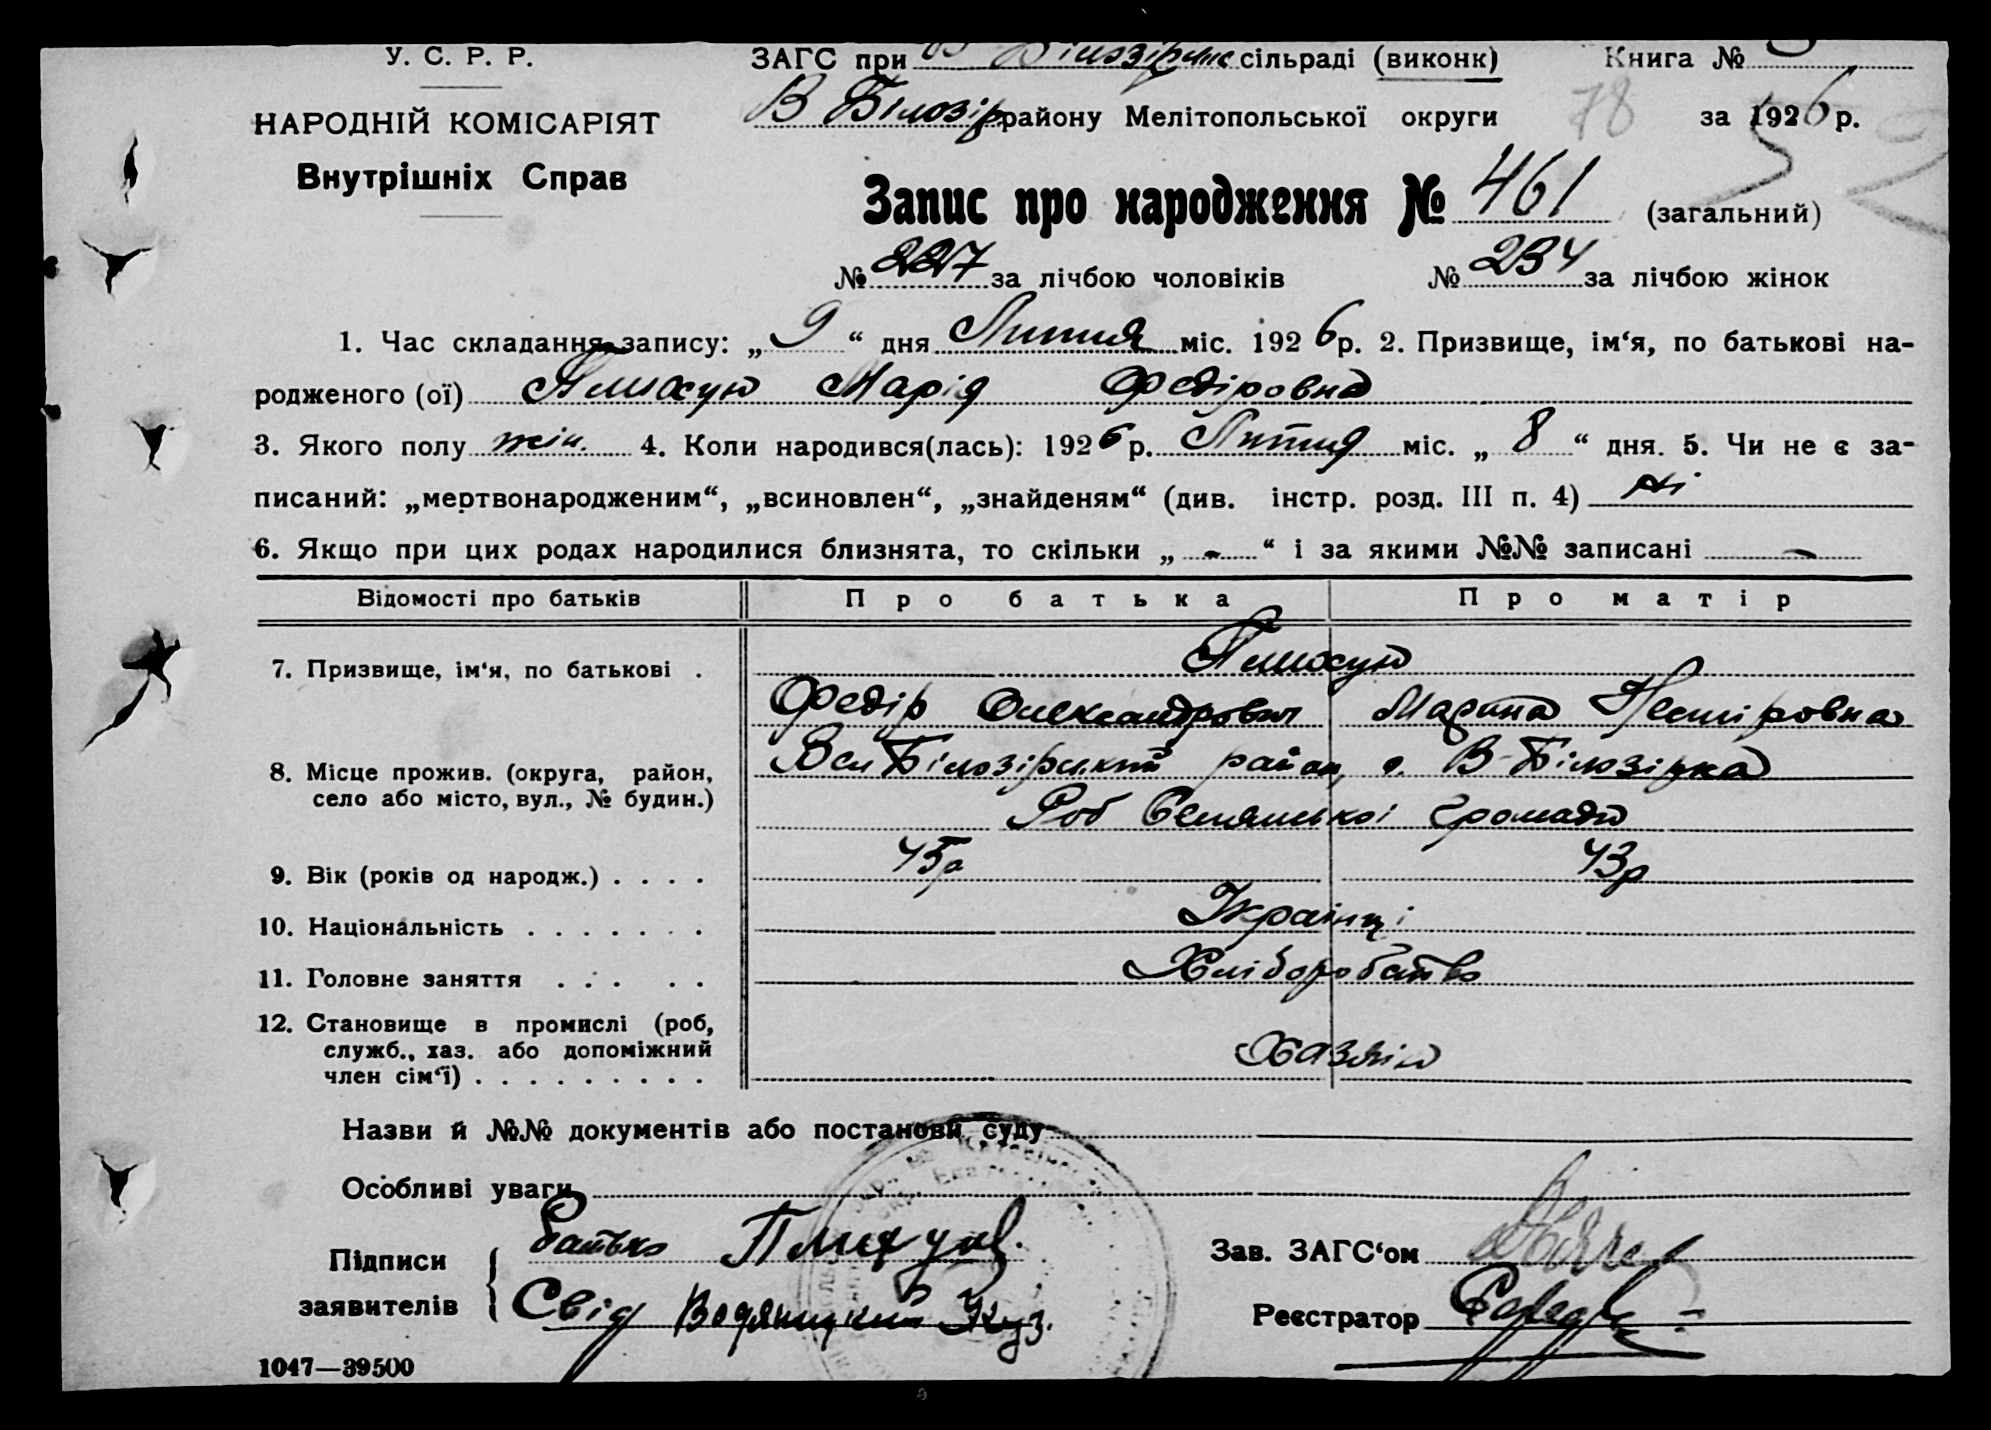 У. С. Р. Р.
ЗАГС при В Білозірське сільраді (виконк) Книга №
НАРОДНІЙ КОМІСАРІЯТ
Внутрішніх Справ
В Білозір району Мелітопольської округи 78 за 1926 р.
52
Запис про народження № 461 (загальний)
№ 227 за лічбою чоловіків № 234 за лічбою жінок
1. Час складання запису: „ 9 “ дня Липня міс. 1926 р. 2. Призвище, ім‘я, по батькові на-
родженого (ої) Плихун Марія Федіровна
3. Якого полу жін. 4. Коли народився(лась): 1926 р. Липня міс. „ 8 “ дня. 5. Чи не є за-
писаний: „мертвонародженим“, „всиновлен“, „знайденям“ (див. інстр. розд. III п. 4) ні
6. Якщо при цих родах народилися близнята, то скільки „ - “ і за якими №№ записані -
Відомості про батьків Про батька Про матір
7. Призвище, ім‘я, по батькові . Плихун
Федір Олександрович Марина Несторовна
8. Місце прожив. (округа, район, Вел Білозірський район, с. В-Білозірка
село або місто, вул., № будин.) Роб Селянської громади
9. Вік (років од народж.) . . . . 45р 43р
10. Національність . . . . . . . Українці
11. Головне заняття . . . . . Хліборобство
12. Становище в промислі (роб,
служб., хаз. або допоміжний
член сім‘ї) . . . . . . . . . Хазяїн
Назви й №№ документів або постанови суду
Особливі уваги
Підписи
заявителів
Батько Плихун
Свід Водяницкий Куз.
Зав. ЗАГС‘ом
Реєстратор
1047—39500